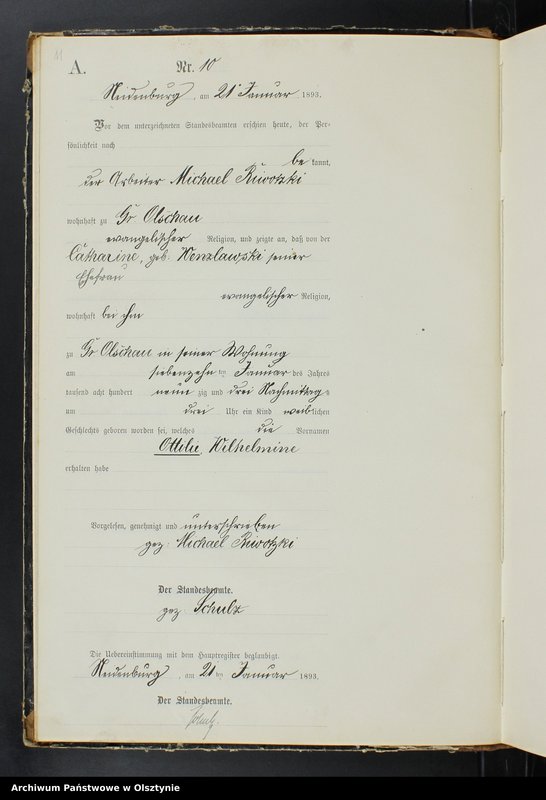 11
A.
Nr. 10
Neidenburg, am 21ten Januar 1893.
Vor dem unterzeichneten Standesbeamten erschien heute, der Per-
sönlichkeit nach
be kannt,
der Arbeiter Michael Riwotzki
wohnhaft zu Gr Olschau
evangelischer Religion, und zeigte an, daß von der
Catharine, geb. Wenzlawski seiner
Ehefrau
evangelischer Religion,
wohnhaft bei ihm
zu Gr Olschau in seiner Wohnung
am siebenzehn ten Januar des Jahres
tausend acht hundert neun zig und drei Nachmittag s
um drei Uhr ein Kind weib lichen
Geschlechts geboren worden sei, welches die Vornamen
Ottilie, Wilhelmine
erhalten habe
Vorgelesen, genehmigt und unterschrieben
gez. Michael Riwotzki
Der Standesbeamte.
gez Schulz
Die Uebereinstimmung mit dem Hauptregister beglaubigt.
Neidenburg, am 21 ten Januar 1893.
Der Standesbeamte.
Schulz.
Archiwum Państwowe w Olsztynie